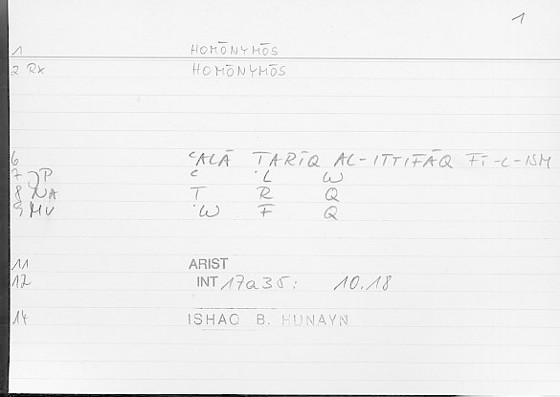 1
1 HOMŌNYMŌS
2 RX HOMŌNYMŌS
6 ʿALĀ TARĪQ AL-ITTIFĀQ FĪ-L-ISM
7 JP ʿ ·L W
8 NA T R Q
9 MV ·W F Q
11 ARIST
12 INT 17a35: 10.18
14 ISHAQ B. HUNAYN